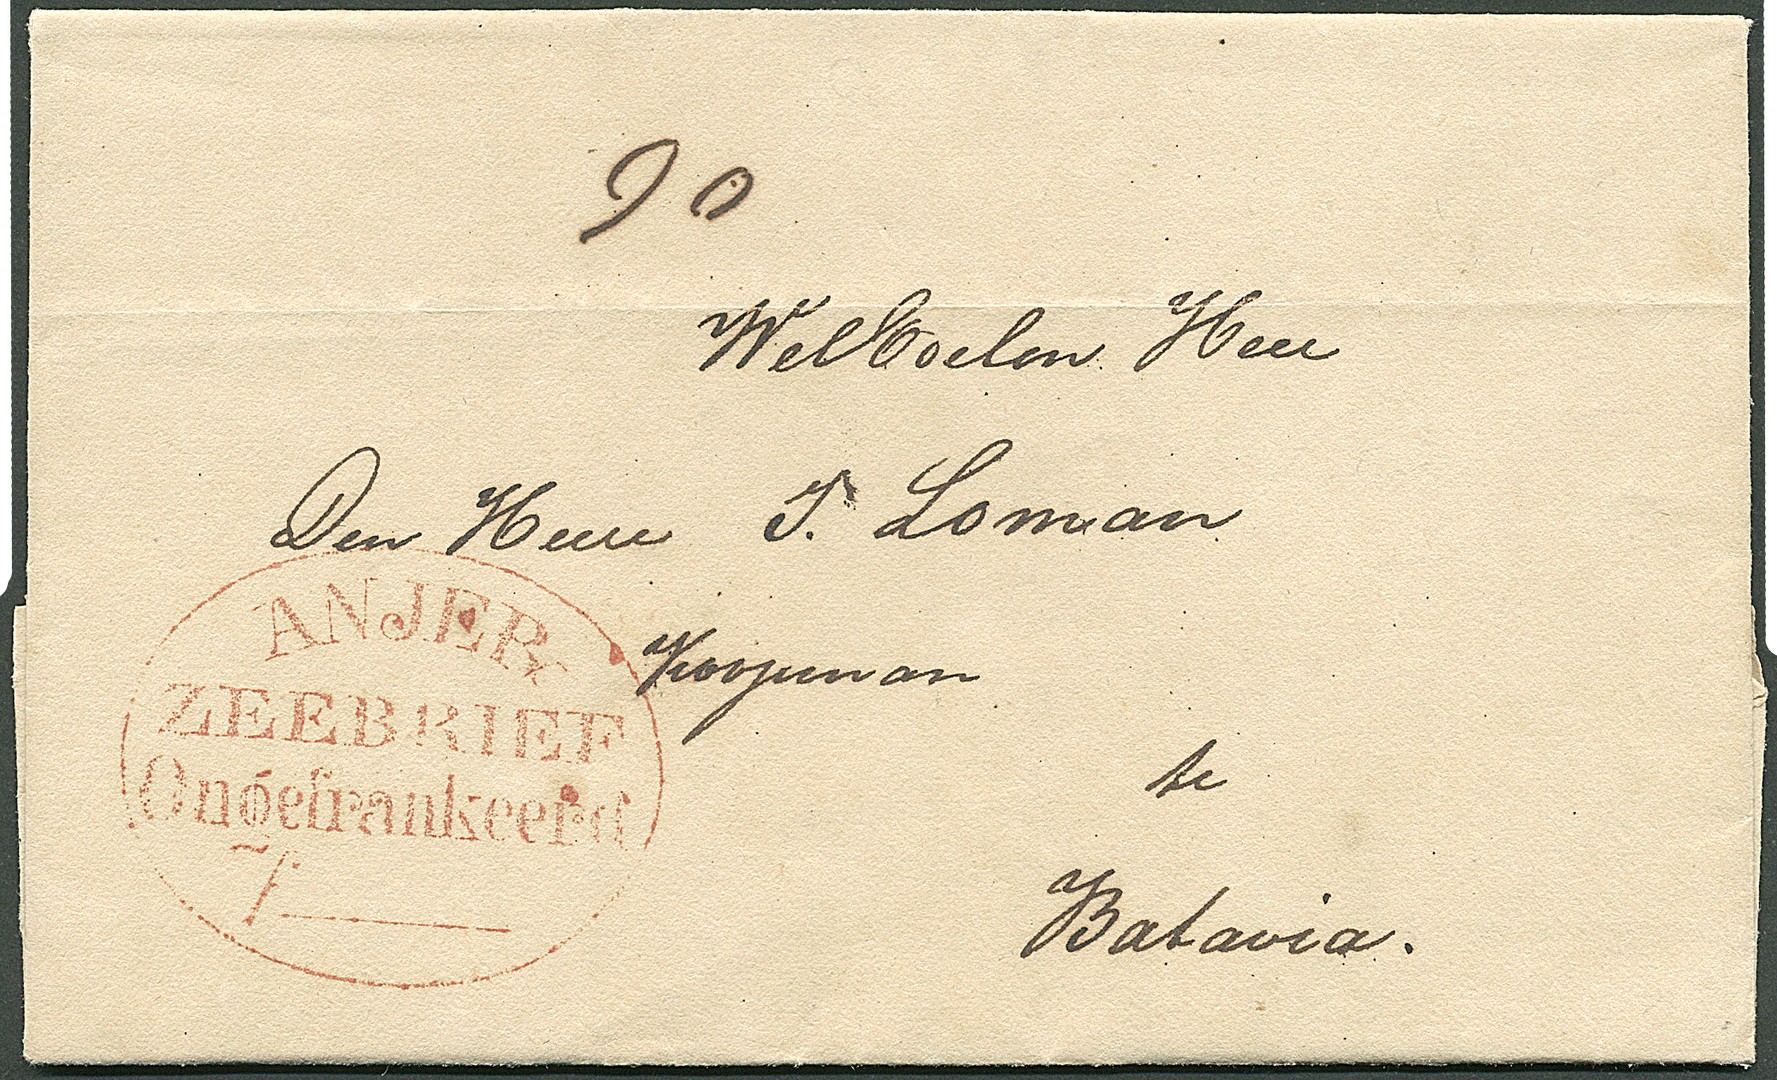 90
Wel Edelen Heer
Den Heere J. Loman
Koopman
te
Batavia.
ANJER
ZEEBRIEF
Ongefrankeerd
ƒ